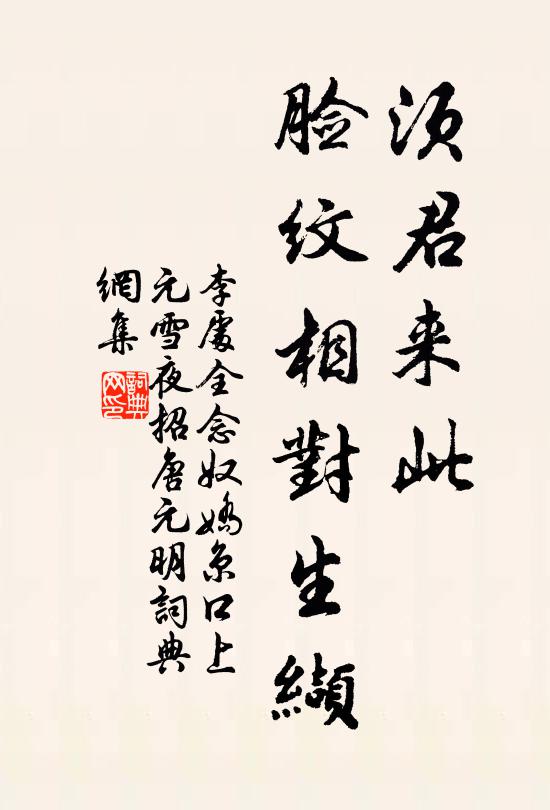 须君来此
脸纹相對生纈
李處全念奴嬌京口上
元雪夜招唐元明詞典
網集
詞典網印